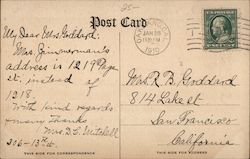 25-
Post Card
JAN 28
1910
My Dear Mrs. Goddard:
Mrs. Zimmerman's
address is 1219
st. instead of
1218.
With kind regards
many thanks
Mrs D. C. Mitchell
306-13th st.
Mrs. R. B. Goddard
814 Lake st
San Francisco
California
THIS SIDE FOR CORRESPONDENCE
THIS SIDE FOR ADDRESS